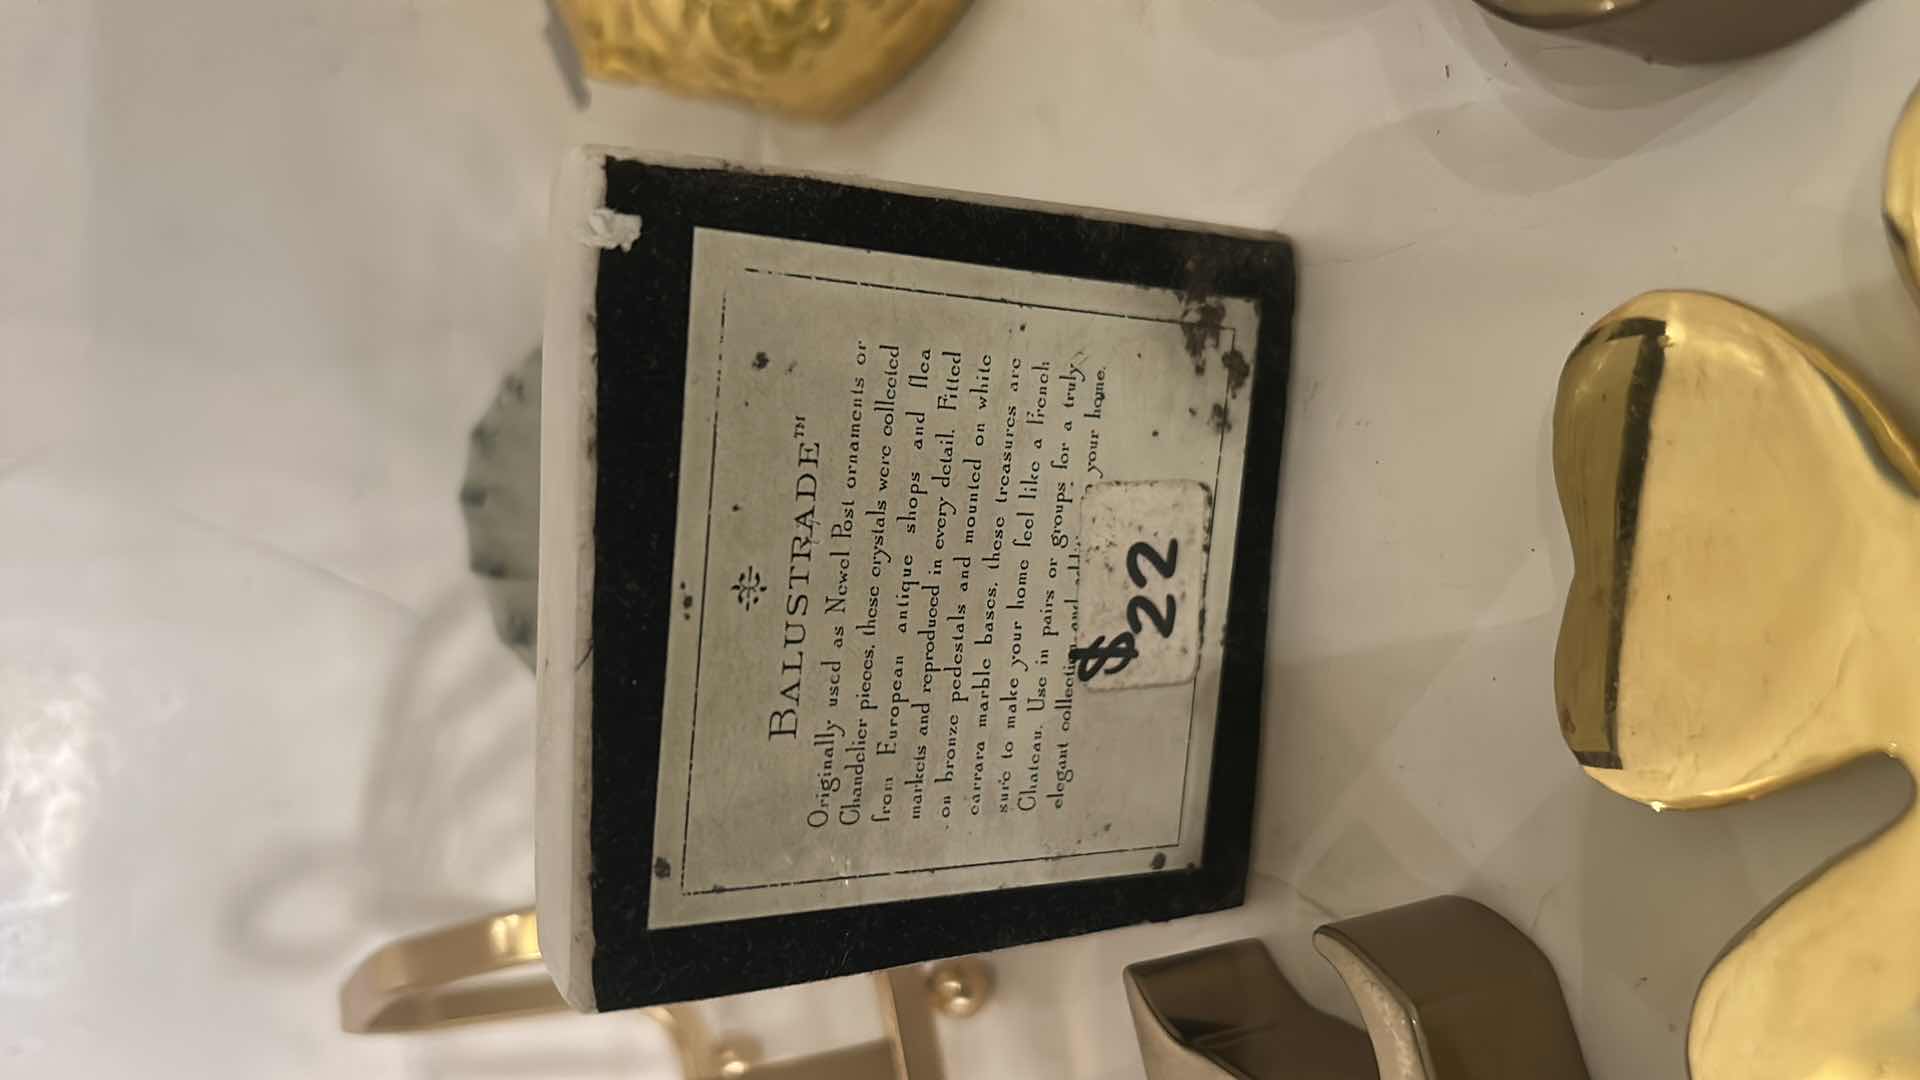 BALUSTRADE™
Originally used as Newel Post ornaments or
Chandelier pieces, these crystals were collected
from European antique shops and flea
markets and reproduced in every detail. Fitted
on bronze pedestals and mounted on white
carrara marble bases, these treasures are
sure to make your home feel like a French
Chateau. Use in pairs or groups for a truly
elegant and
your home.
$22